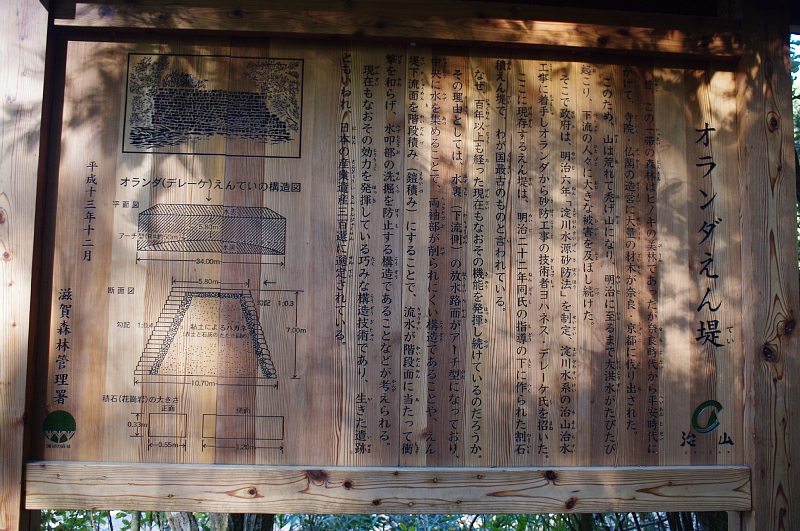 オランダえん堤
昔、この一帯の森林はヒノキの美林であったが奈良時代から平安時代に
かけて、寺院・仏閣の造営に大量の材木が奈良・京都に伐り出された。
このため、山は荒れて禿げ山になり、明治に至るまで大洪水がたびたび
起こり、下流の人々に大きな被害を及ぼし続けた。
そこで政府は、明治六年「淀川水源砂防法」を制定、淀川水系の治山治水
工事に着手しオランダから砂防工事の技術者ヨハネス・デレーケ氏を招いた。
ここに現存するえん堤は、明治二十二年同氏の指導の下に作られた割石
積えん堤で、わが国最古のものと言われている。
なぜ、百年以上も経った現在もなおその機能を発揮し続けているのだろうか。
その理由としては、水裏(下流側)の放水路面がアーチ型になっており、
中央に水を集めることで、両袖部が削られにくい構造であることや、えん
堤下流面を階段積み(鎧積み)にすることで、流水が階段面に当たって衝
撃を和らげ、水叩部の洗掘を防止する構造であることなどが考えられる。
現在もなおその効力を発揮している巧みな構造技術であり、生きた遺跡
ともいわれ、日本の産業遺産三百選に選定されている。
オランダ(デレーケ)えんていの構造図
平面図
水表
5.80m
水裏
34.00m
断面図
5.80m
勾配 1:0.3
勾配 1:0.4
粘土によるハガネ
7.00m
10.70m
積石(花崗岩)の大きさ
正面
側面
0.33m
0.55m
1.20m
平成十三年十二月
滋賀森林管理署
治山